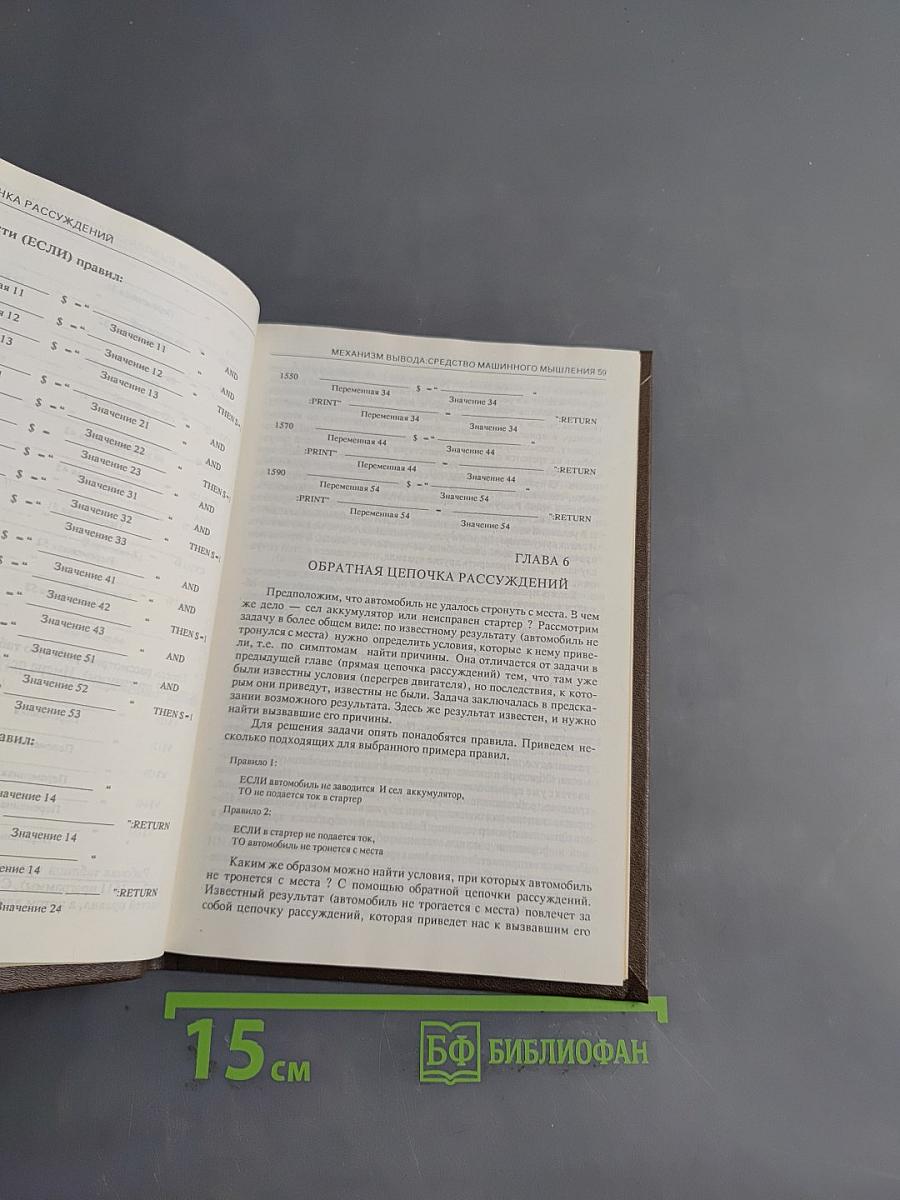 НКА РАССУЖДЕНИЙ
сти (ЕСЛИ) правил:
ая 11 $ = " Значение 11 " AND
я 12 $ = " Значение 12 " AND
13 $ = " Значение 13 " THEN $=
$ = " Значение 21 " AND
$ = Значение 22 " AND
$ = " Значение 23 " THEN $=
$ = " Значение 31 " AND
$ = " Значение 32 " AND
$ = " Значение 33 " THEN $=
$ = " Значение 41 " AND
= " Значение 42 " AND
= " Значение 43 " THEN $=
" Значение 51 " AND
" Значение 52 " AND
Значение 53 " THEN $=
равил:
"
начение 14
":RETURN
Значение 14
"
ение 14
":RETURN
Значение 24
МЕХАНИЗМ ВЫВОДА:СРЕДСТВО МАШИННОГО МЫШЛЕНИЯ 59
1550 $ = " "
Переменная 34 Значение 34
:PRINT" = ":RETURN
Переменная 34 Значение 34
1570 $ = " "
Переменная 44 Значение 44
:PRINT" = ":RETURN
Переменная 44 Значение 44
1590 $ = " "
Переменная 54 Значение 54
:PRINT" = ":RETURN
Переменная 54 Значение 54
ГЛАВА 6
ОБРАТНАЯ ЦЕПОЧКА РАССУЖДЕНИЙ
Предположим, что автомобиль не удалось стронуть с места. В чем
же дело — сел аккумулятор или неисправен стартер ? Рассмотрим
задачу в более общем виде: по известному результату (автомобиль не
тронулся с места) нужно определить условия, которые к нему приве-
ли, т.е. по симптомам найти причины. Она отличается от задачи в
предыдущей главе (прямая цепочка рассуждений) тем, что там уже
были известны условия (перегрев двигателя), но последствия, к кото-
рым они приведут, известны не были. Задача заключалась в предска-
зании возможного результата. Здесь же результат известен, и нужно
найти вызвавшие его причины.
Для решения задачи опять понадобятся правила. Приведем не-
сколько подходящих для выбранного примера правил.
Правило 1:
ЕСЛИ автомобиль не заводится И сел аккумулятор,
ТО не подается ток в стартер
Правило 2:
ЕСЛИ в стартер не подается ток,
ТО автомобиль не тронется с места
Каким же образом можно найти условия, при которых автомобиль
не тронется с места ? С помощью обратной цепочки рассуждений.
Известный результат (автомобиль не трогается с места) повлечет за
собой цепочку рассуждений, которая приведет нас к вызвавшим его
15 см
БФ БИБЛИОФАН